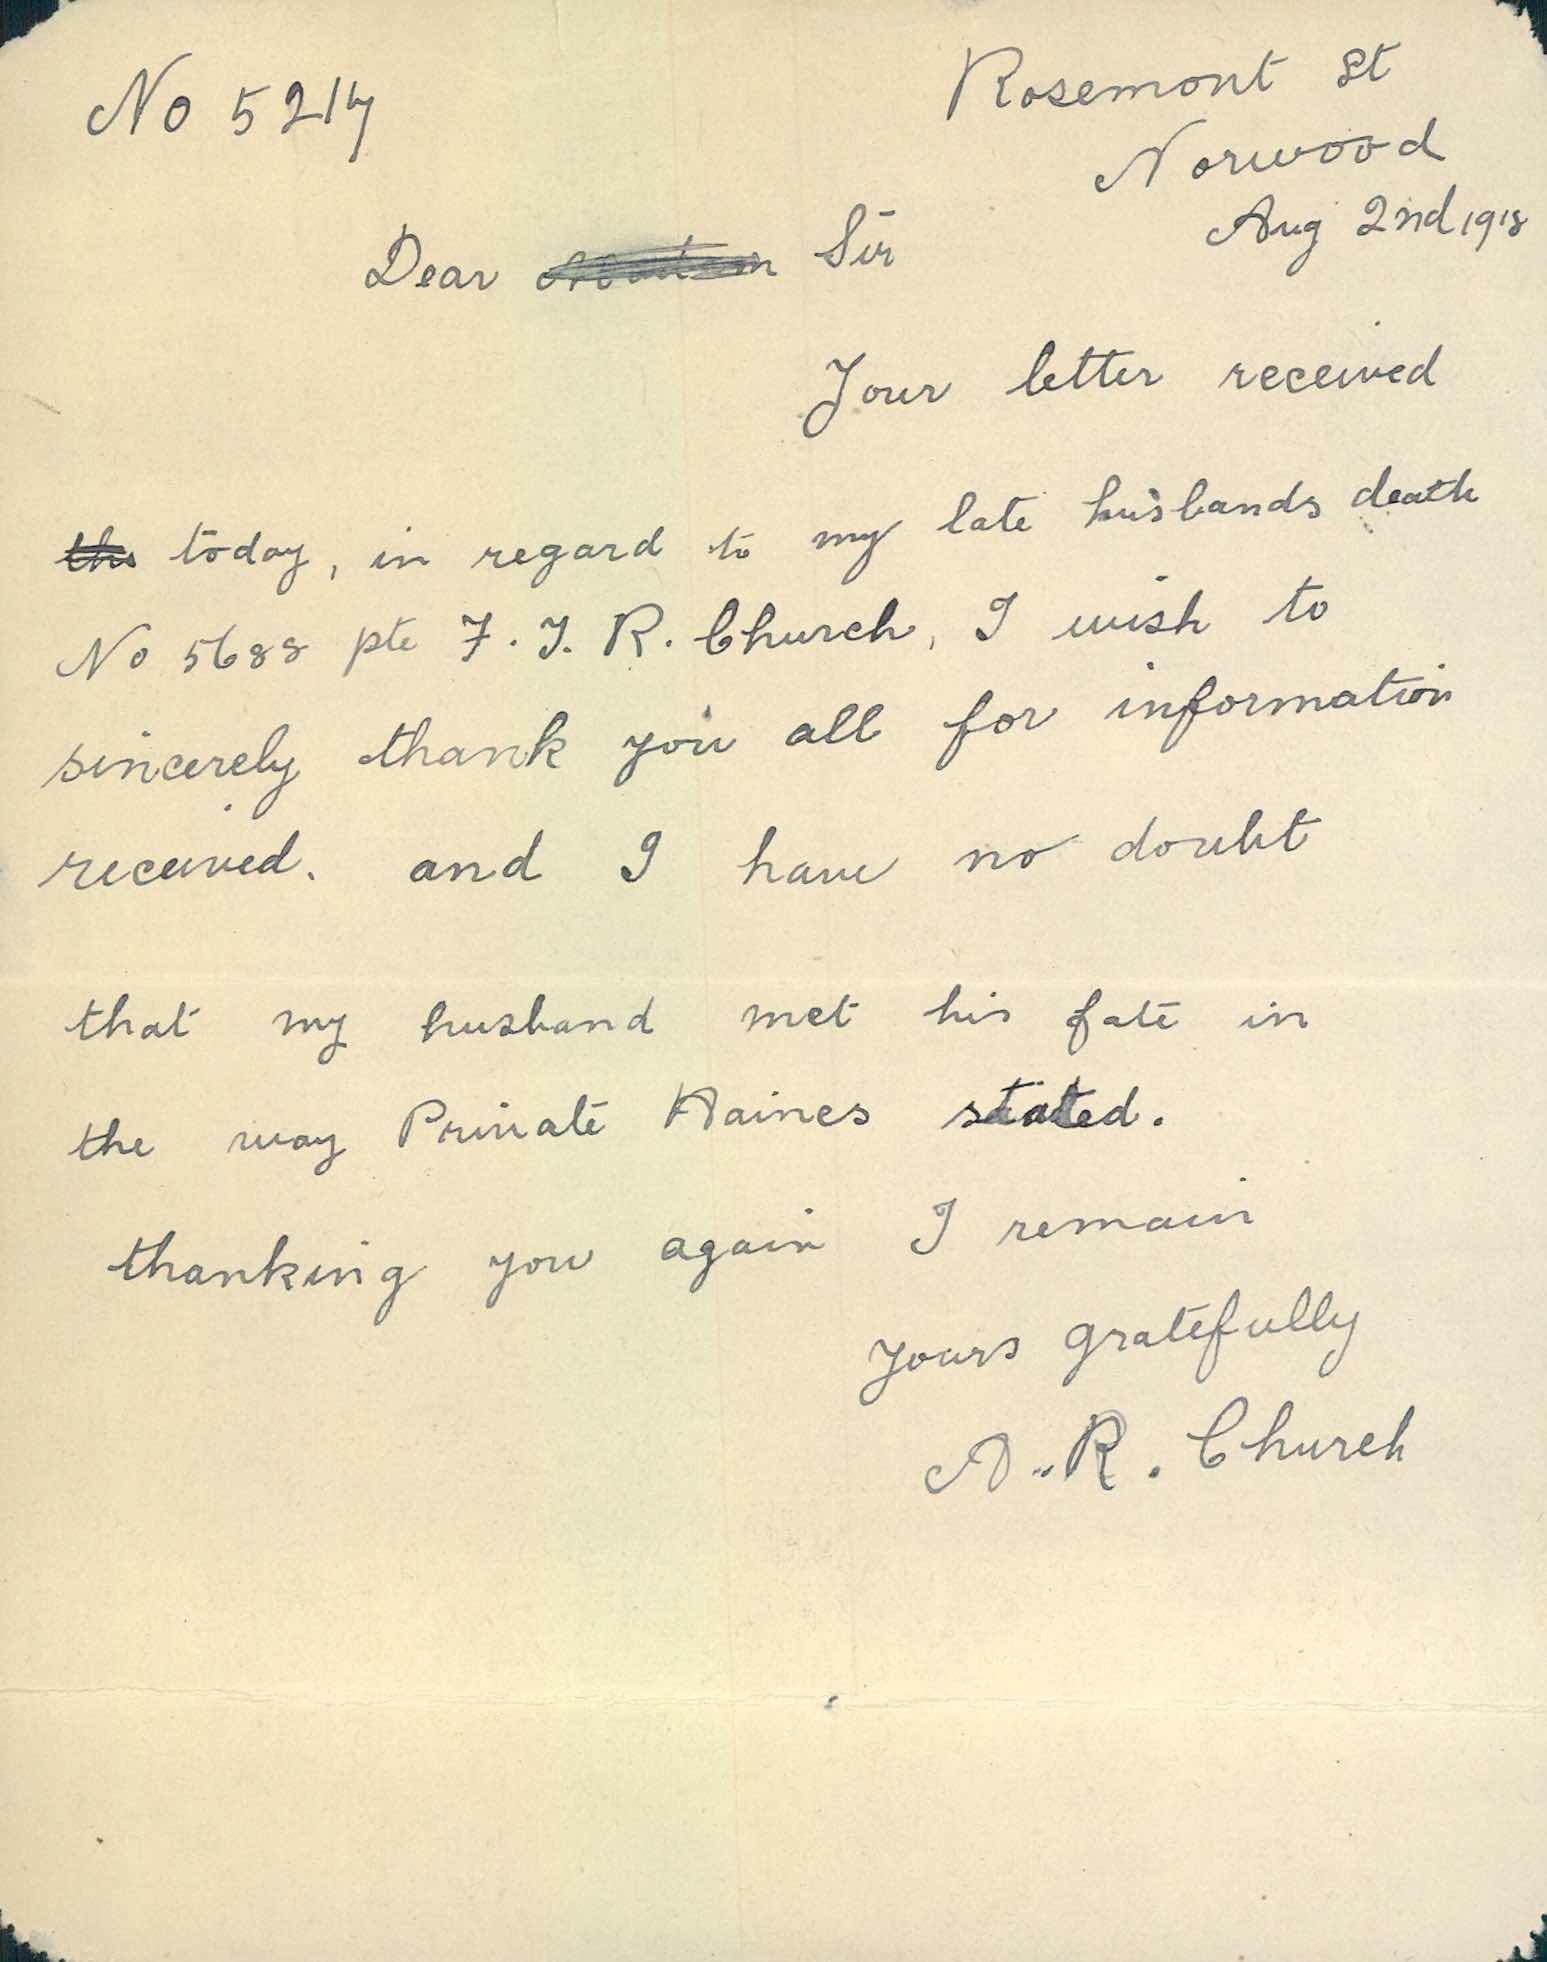 No 5217
Rosemont St
Norwood
Aug 2nd 1918
Dear Sir
Your letter received
today, in regard to my late husbands death
No 5688 pte F. J. R. Church, I wish to
sincerely thank you all for information
received. and I have no doubt
that my husband met his fate in
the way Private Haines stated.
thanking you again I remain
yours gratefully
A. R. Church